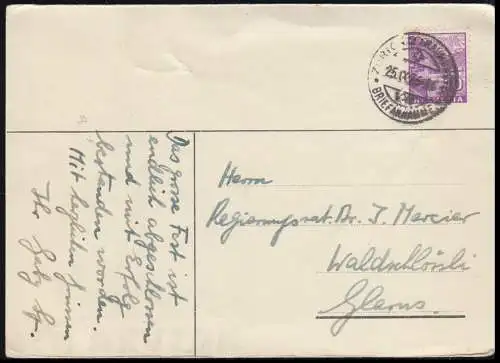 ZÜRICH
25.IX.
BRIEFANNAHME
HELVETIA
Das grosse Fest ist
endlich abgeschlossen
und mit Erfolg
bestanden worden.
Mit herzlichen Grüssen
Ihr
Herrn
Regierungsrat Dr. J. Mercier
Waldschlössli
Glarus.